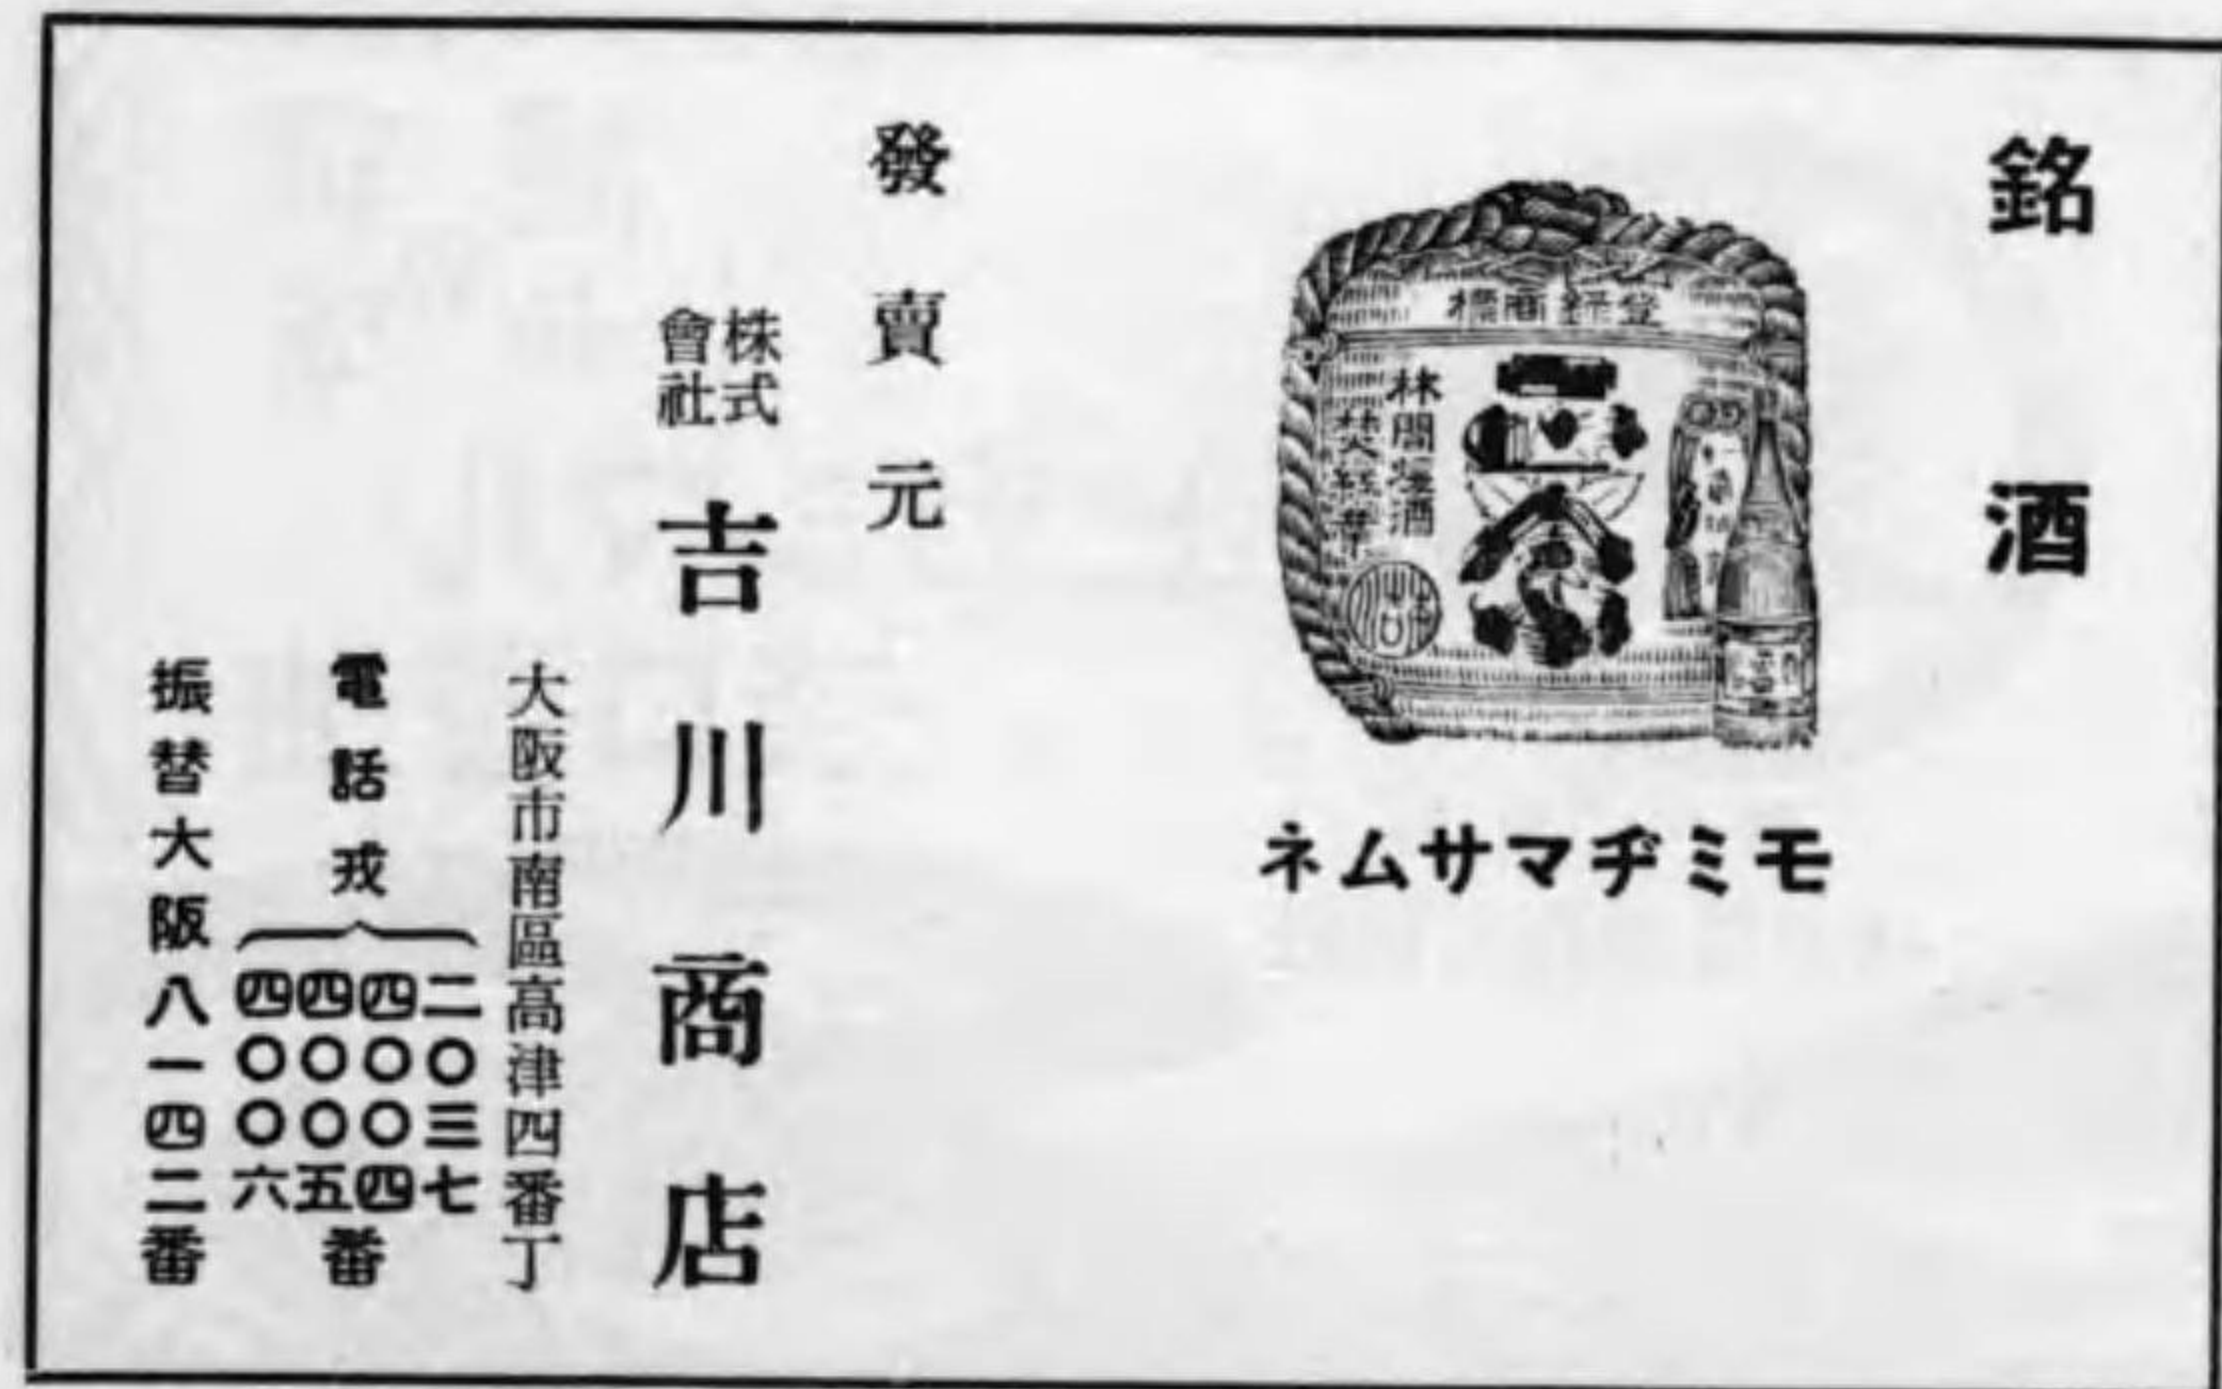 銘酒
登録商標
林間煖酒
焚紅葉
モミヂマサムネ
發賣元
株式會社 吉川商店
大阪市南區高津四番丁
電話戎
二〇三七
四〇〇四
四〇〇五
四〇〇六
番
振替大阪八一四二番